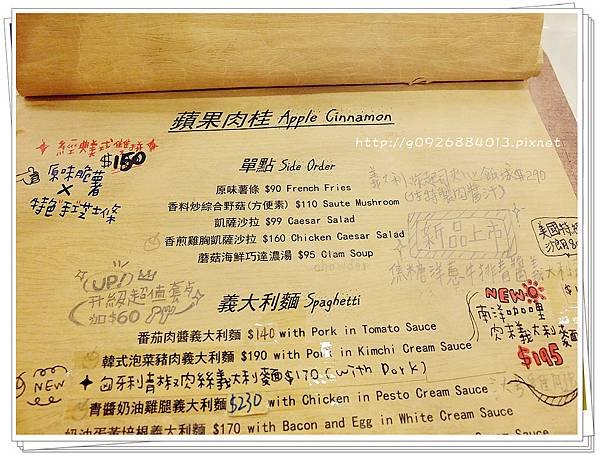 蘋果肉桂 Apple Cinnamon
http://g0926884013.pixnet
$150
原味脆薯
×
特色手工芝士條
單點 Side Order
原味薯條 $90 French Fries
香料炒綜合野菇(方便素) $110 Saute Mushroom
凱薩沙拉 $99 Caesar Salad
香煎雞胸凱薩沙拉 $160 Chicken Caesar Salad
蘑菇海鮮巧達濃湯 $95 Clam Soup
chowder
$290
新品上市
UP!
升級超值套
加$60
義大利麵 Spaghetti
番茄肉醬義大利麵 $140 with Pork in Tomato Sauce
韓式泡菜豬肉義大利麵 $190 with Pork in Kimchi Cream Sauce
匈牙利青椒肉絲義大利麵$170 (with Pork)
NEW
青醬奶油雞腿義大利麵 $230 with Chicken in Pesto Cream Sauce
奶油蛋黃培根義大利麵 $170 with Bacon and Egg in White Cream Sauce
Cream Sauce
NEW
南洋咖哩
肉末義大利麵
$195
美國特